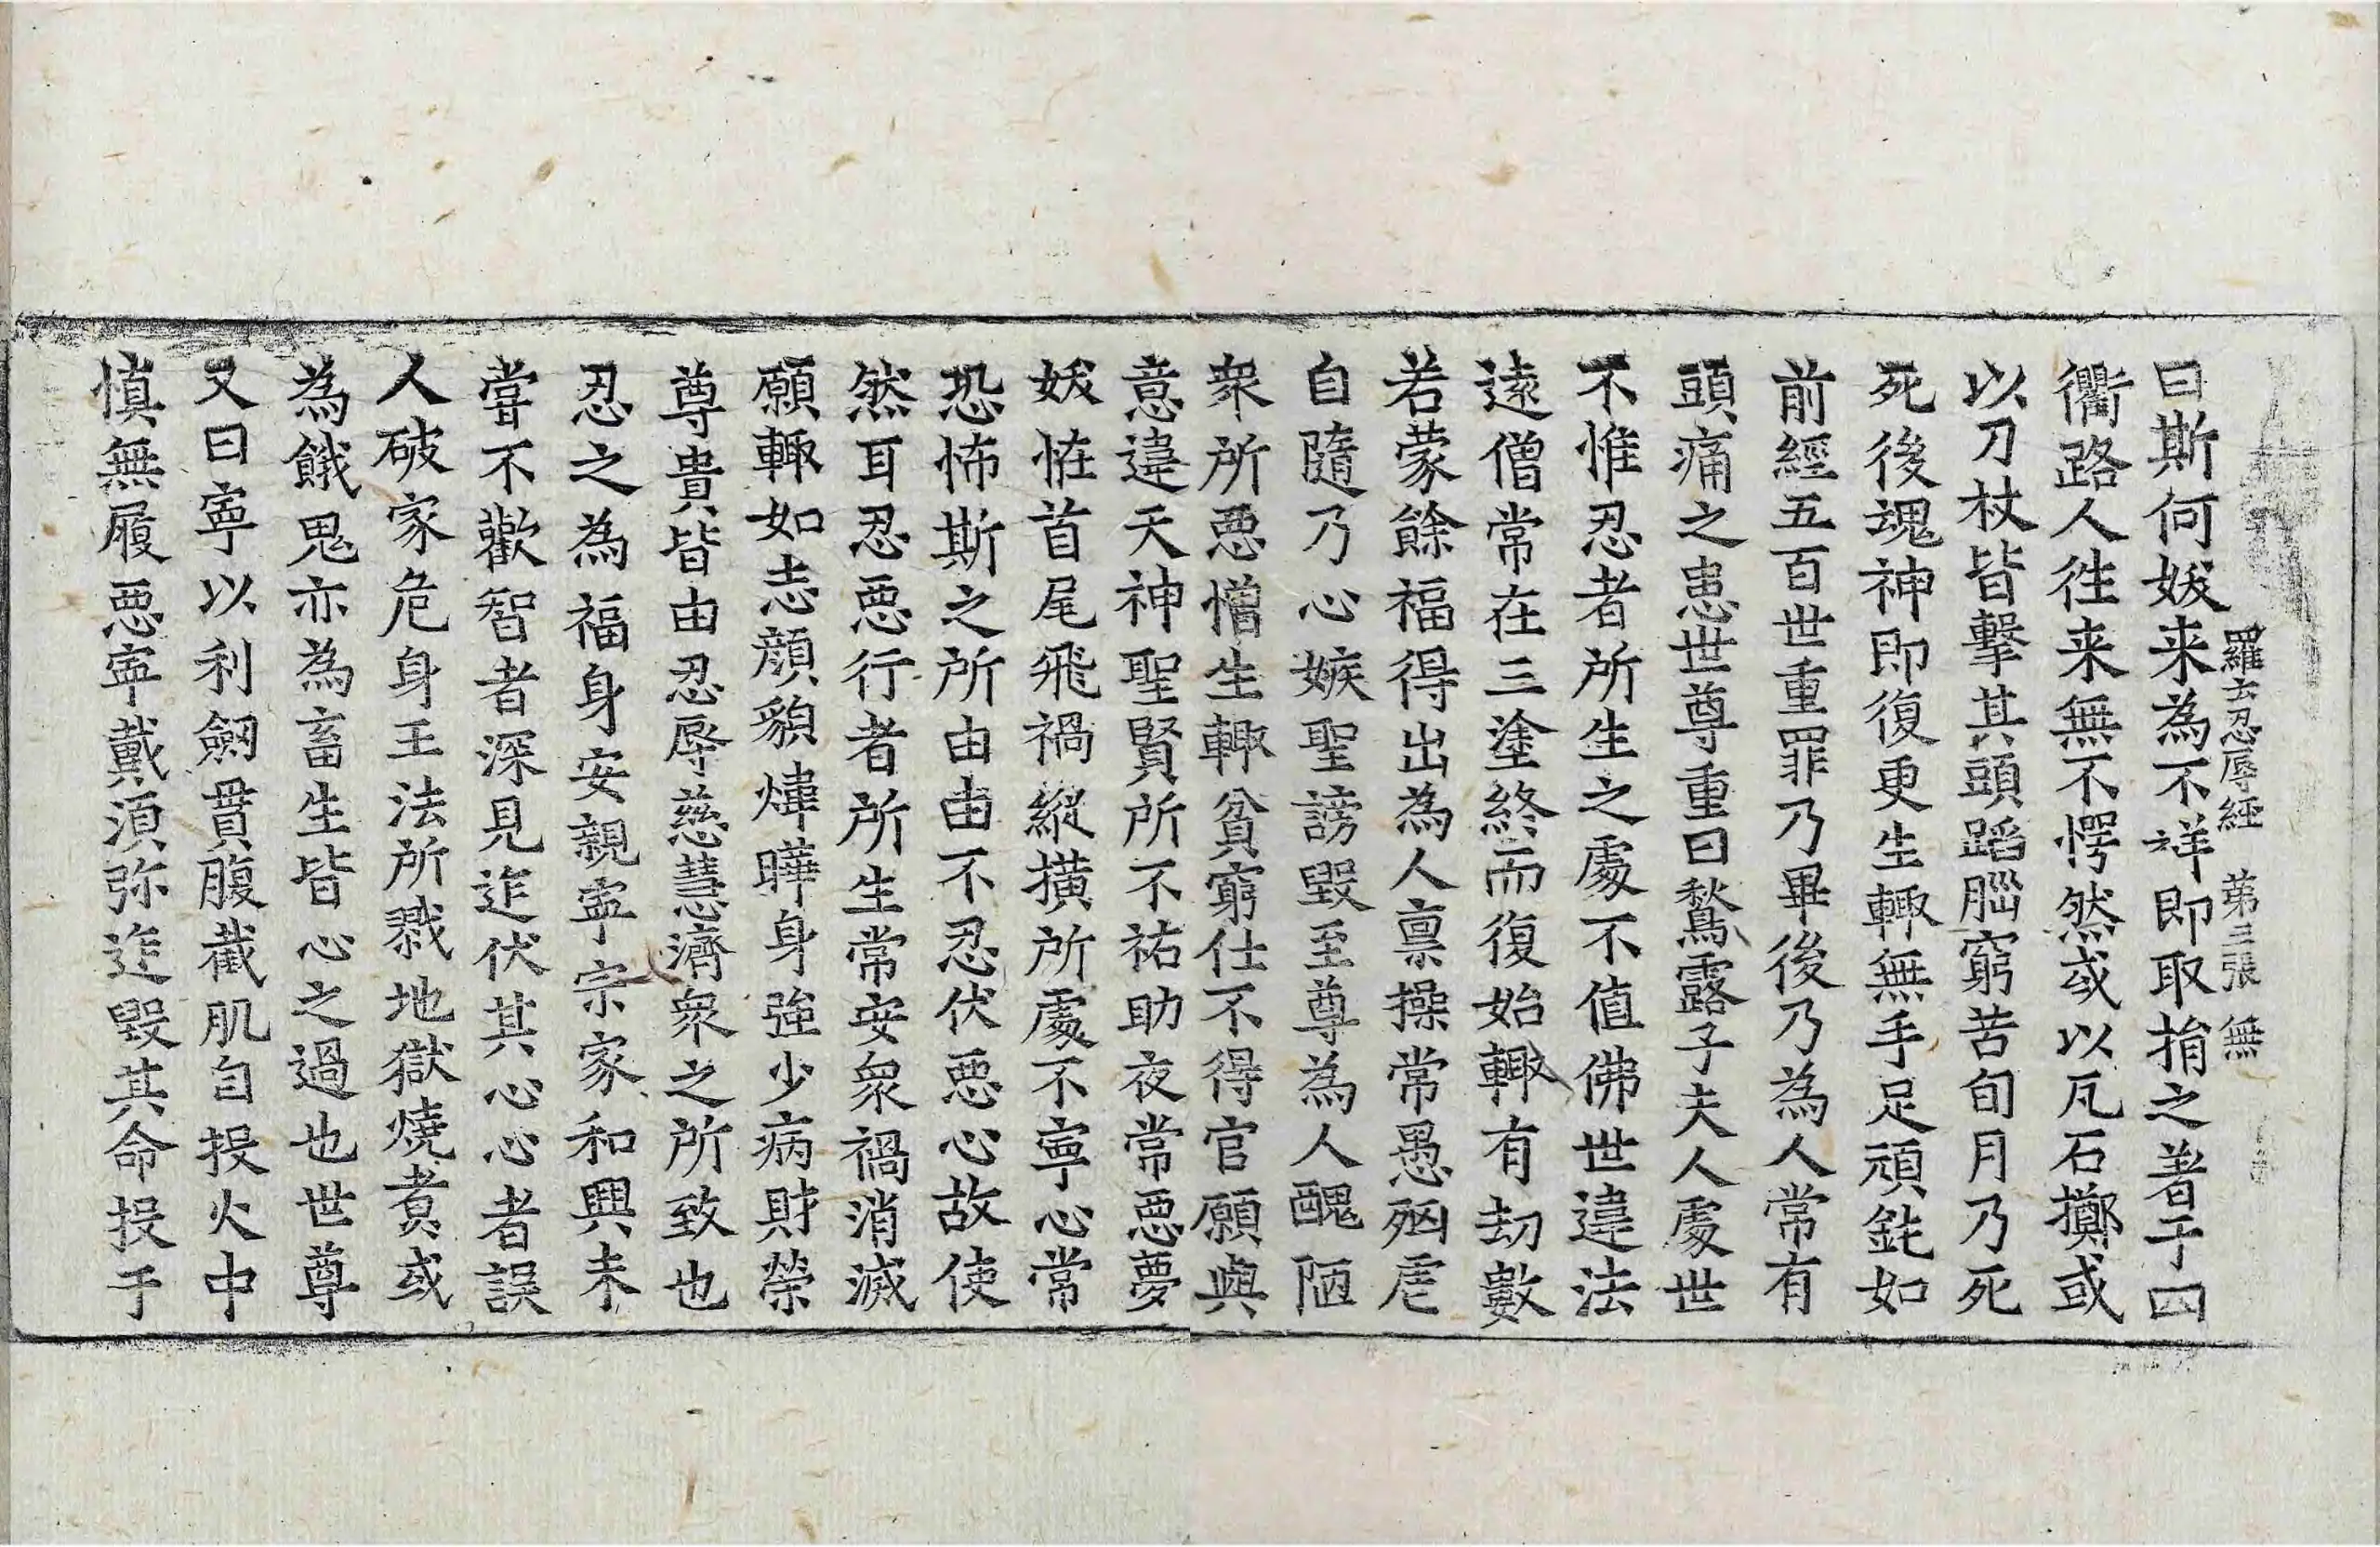 羅云忍辱經 第三張 無
曰斯何妭来為不祥即取捐之著于四
衢路人徃来無不愕然或以凡石擲或
以刀杖皆擊其頭蹈𦛁窮苦旬月乃死
死後魂神即復更生輙無手足頑鈍如
前經五百世重罪乃畢後乃為人常有
頭痛之患世尊重曰鶖露子夫人處世
不惟忍者所生之處不值佛世違法
遠僧常在三塗終而復始輙有劫數
若蒙餘福得出為人禀操常愚㓙虐
自隨乃心嫉聖謗毀至尊為人醜陋
衆所惡憎生輙貧窮仕不得官願與
意違天神聖賢所不祐助夜常惡夢
妭恠首尾飛禍縱撗所處不寧心常
恐怖斯之所由由不忍伏惡心故使
然耳忍惡行者所生常安衆禍消滅
願輙如志顔貌煒曄身強少病財榮
尊貴皆由忍辱慈慧濟衆之所致也
忍之為福身安親寧宗家和興未
嘗不歡智者深見迮伏其心心者誤
人破家危身王法所戮地獄燒煑或
為餓鬼亦為畜生皆心之過也世尊
又曰寧以利劒貫腹截肌自投火中
慎無履惡寧戴湏弥迮毀其命投于